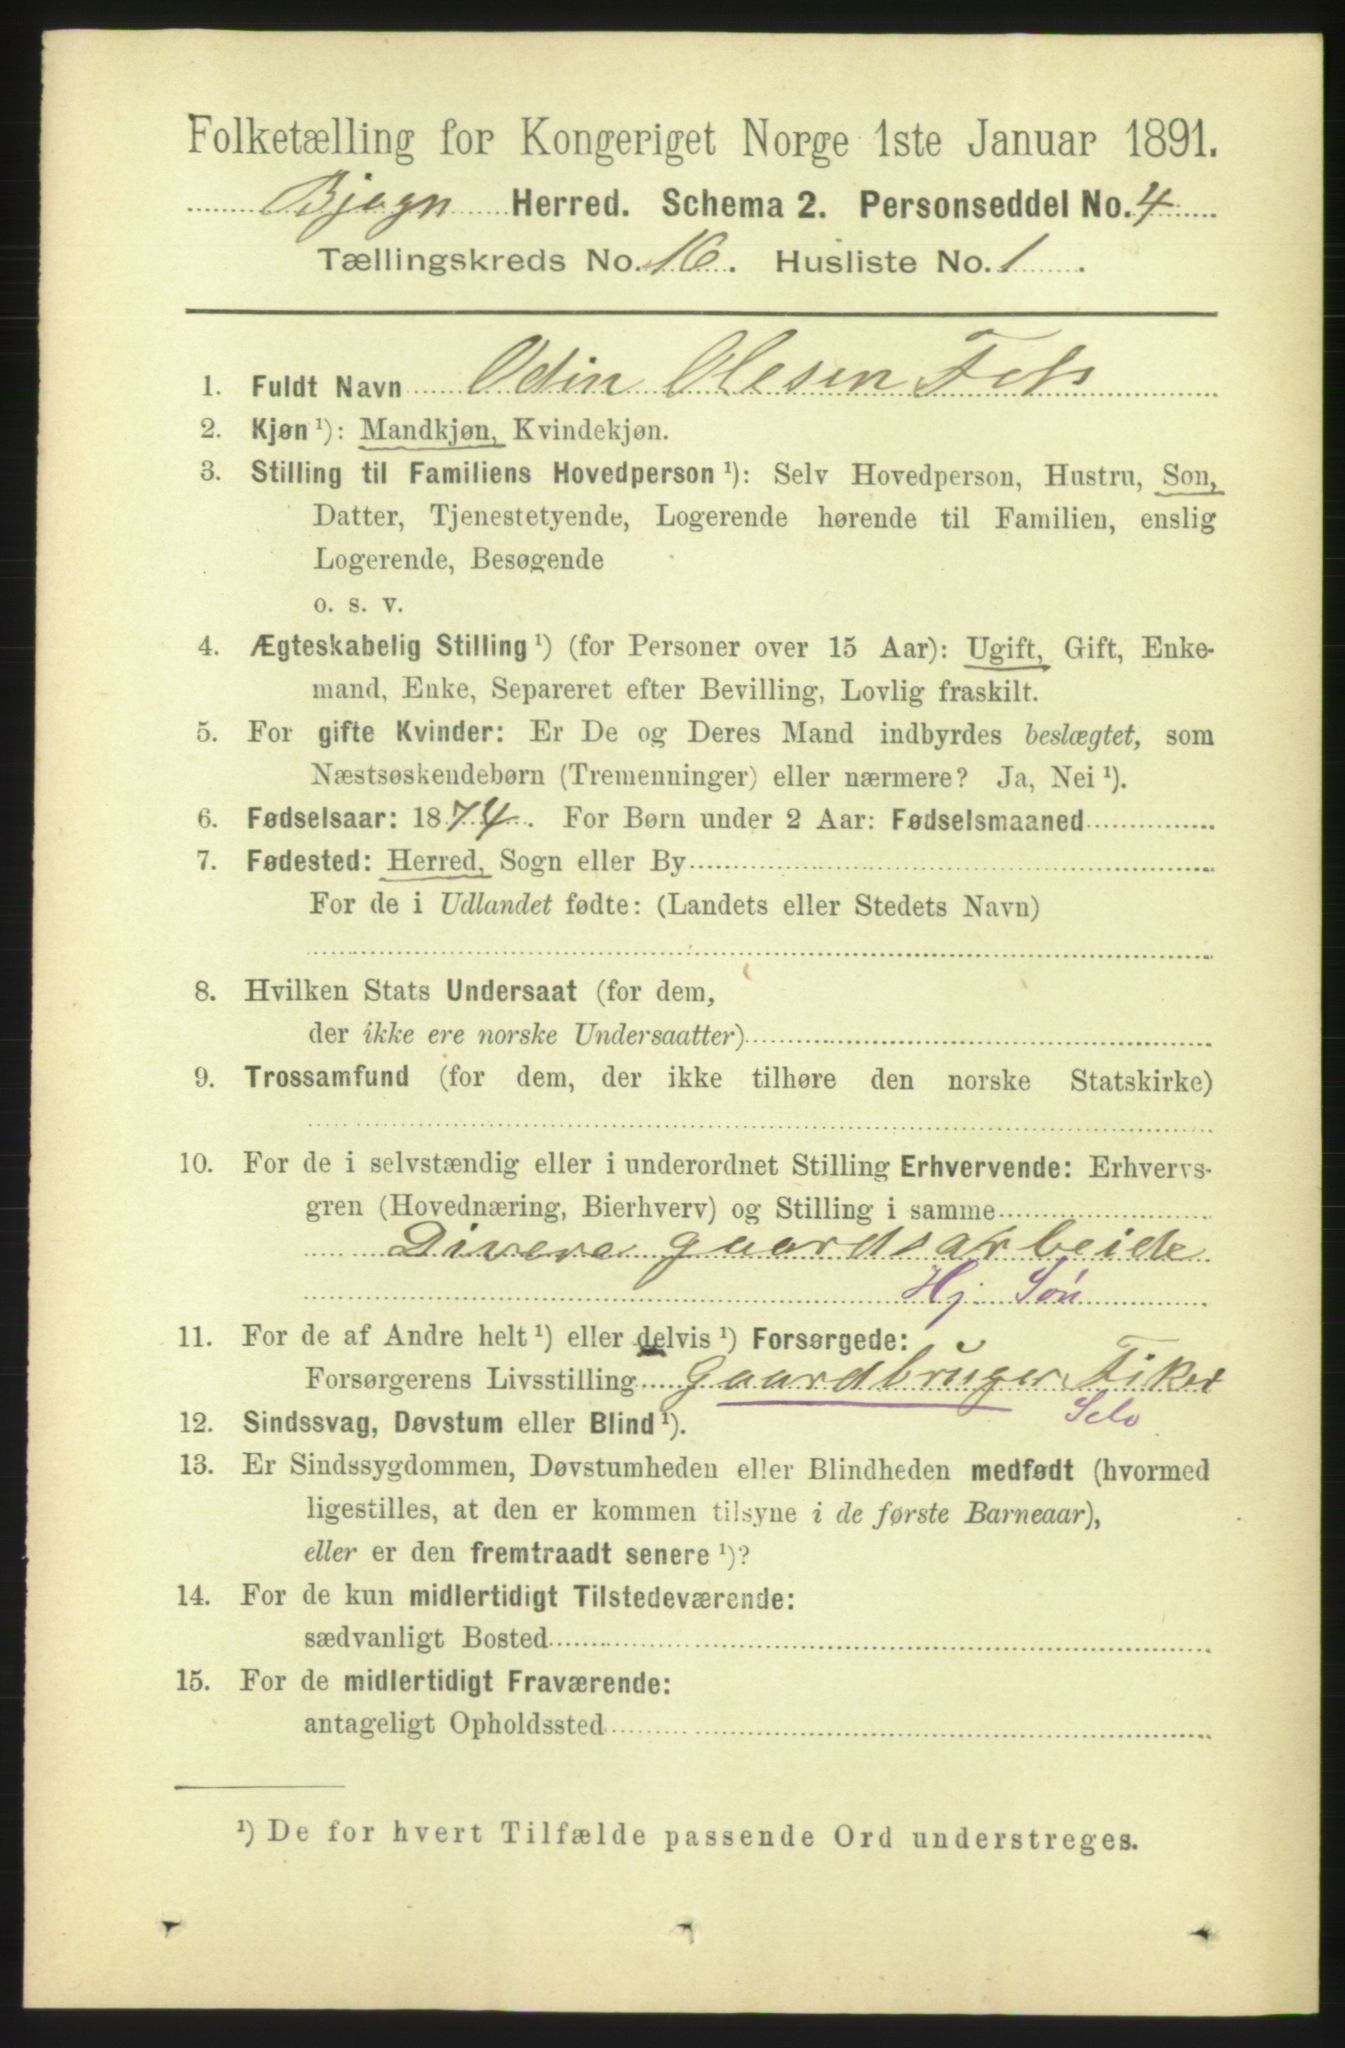 Folketælling for Kongeriget Norge 1ste Januar 1891.
Bjugn Herred. Schema 2. Personseddel No. 4
Tællingskreds No. 16. Husliste No. 1.
1. Fuldt Navn Odin Olesen
2. Kjøn ¹): Mandkjøn, Kvindekjøn.
3. Stilling til Familiens Hovedperson ¹): Selv Hovedperson, Hustru, Søn,
Datter, Tjenestetyende, Logerende hørende til Familien, enslig
Logerende, Besøgende
o. s. v.
4. Ægteskabelig Stilling ¹) (for Personer over 15 Aar): Ugift, Gift, Enke-
mand, Enke, Separeret efter Bevilling, Lovlig fraskilt.
5. For gifte Kvinder: Er De og Deres Mand indbyrdes beslægtet, som
Næstsøskendebørn (Tremenninger) eller nærmere? Ja, Nei ¹).
6. Fødselsaar: 1874. For Børn under 2 Aar: Fødselsmaaned
7. Fødested: Herred, Sogn eller By
For de i Udlandet fødte: (Landets eller Stedets Navn)
8. Hvilken Stats Undersaat (for dem,
der ikke ere norske Undersaatter)
9. Trossamfund (for dem, der ikke tilhøre den norske Statskirke)
10. For de i selvstændig eller i underordnet Stilling Erhvervende: Erhvervs-
gren (Hovednæring, Bierhverv) og Stilling i samme
Divere gaardsarbeide
Hj. Søn
11. For de af Andre helt ¹) eller delvis ¹) Forsørgede:
Forsørgerens Livsstilling Gaardbruger Fiker
Selv
12. Sindssvag, Døvstum eller Blind ¹).
13. Er Sindssygdommen, Døvstumheden eller Blindheden medfødt (hvormed
ligestilles, at den er kommen tilsyne i de første Barneaar),
eller er den fremtraadt senere ¹)?
14. For de kun midlertidigt Tilstedeværende:
sædvanligt Bosted
15. For de midlertidigt Fraværende:
antageligt Opholdssted
¹) De for hvert Tilfælde passende Ord understreges.